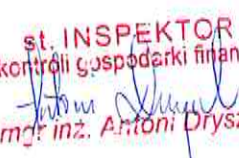 st. INSPEKTOR
kontroli gospodarki finan
mgr inż. Antoni Drysz